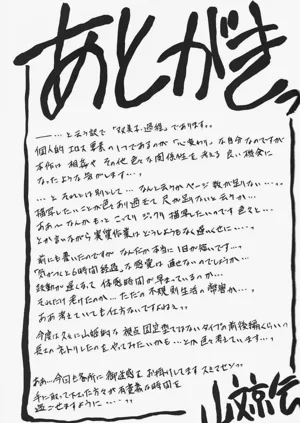 あとがきっ
――…と云う訳で「双美子・過維」であります。
個人的エロス要素の1つであるのが「心変わり」な自分なのですが
本作は相姦やその他色々な関係性を考える良い機会に
なったような気がします…。
…とそれとは別として…なんと云うかページ数が足りない…。
描写したいことが色々あり過ぎて尺が足りないと云うか…
ああ〜なんかもっとこってりジックリ描写したいのです色々と…
とか言いながら実質作業はどうしようもなく遅いくせに…。
前にも書いたのですがなんだか本当に1日が短いです…。
「気がつくと6時間経過」な感覚は直せないのでしょうか…
鼓動が遅くなって体感時間が早まっているのか…
それだけ老けたのか…ただの不規則生活の弊害か…
ああ考えていても仕方ないですねぇ。
今度は久々に山姫的な視点固定型ではないタイプの前後編くらいの
長さのネトリしたのをやってみたいかも…とか色々考えています…。
ああ…今回も各所に御迷惑をお掛けしてますスミマセン。
手に取って下さった方々が有意義な時間を
過ごせますように……。